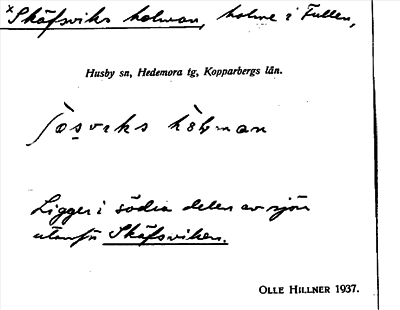 ×Skäfsviks holman, holme i Fullen,
Husby sn, Hedemora tg, Kopparbergs län.
Ligger i södra delen av sjön
utanför Skäfsviken.
OLLE HILLNER 1937.